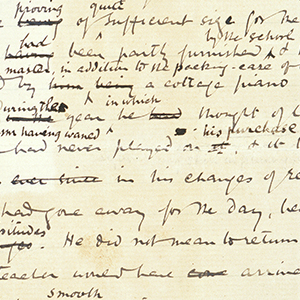 proving quite
of sufficient size for the
had by the school
been partly furnished
master, in addition to the packing-case of
by a cottage piano
during the in which
year he had thought of l
having waned his purchase
had never played on it, & it
ever since in his changes of
had gone away for the day, be
. He did not mean to return
teacher would have come arri
smooth